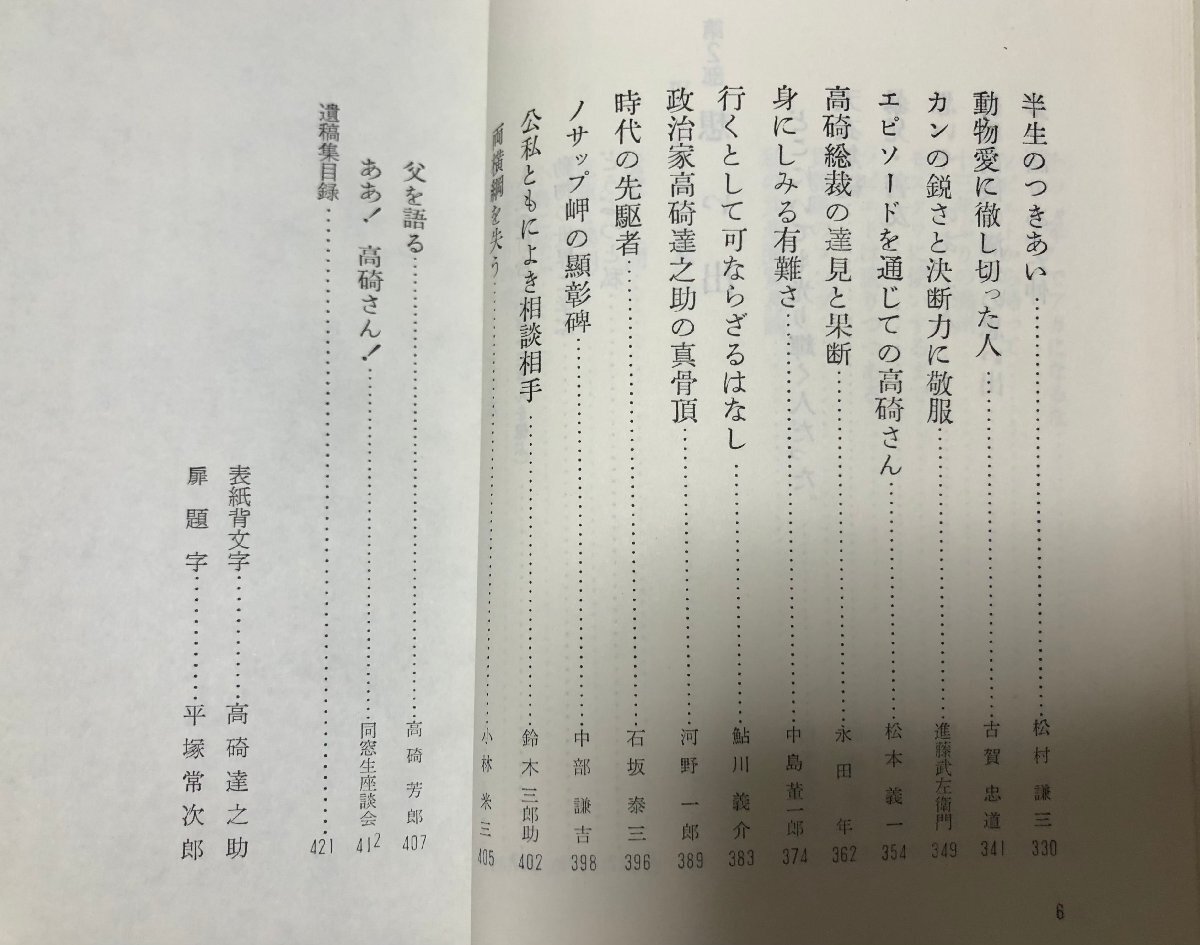 半生のつきあい……松村謙三 330
動物愛に徹し切った人……古賀忠道 341
カンの鋭さと決断力に敬服……進藤武左衛門 349
エピソードを通じての高碕さん……松本義一 354
高碕総裁の達見と果断……永田年 362
身にしみる有難さ……中島董一郎 374
行くとして可ならざるはなし……鮎川義介 383
政治家高碕達之助の真骨頂……河野一郎 389
時代の先駆者……石坂泰三 396
ノサップ岬の顕彰碑……中部謙吉 398
公私ともによき相談相手……鈴木三郎助 402
両横綱を失う……小林米三 405
父を語る……高碕芳郎 407
ああ！高碕さん！……同窓生座談会 412
遺稿集目録……421
表紙背文字……高碕達之助
扉題字……平塚常次郎
6